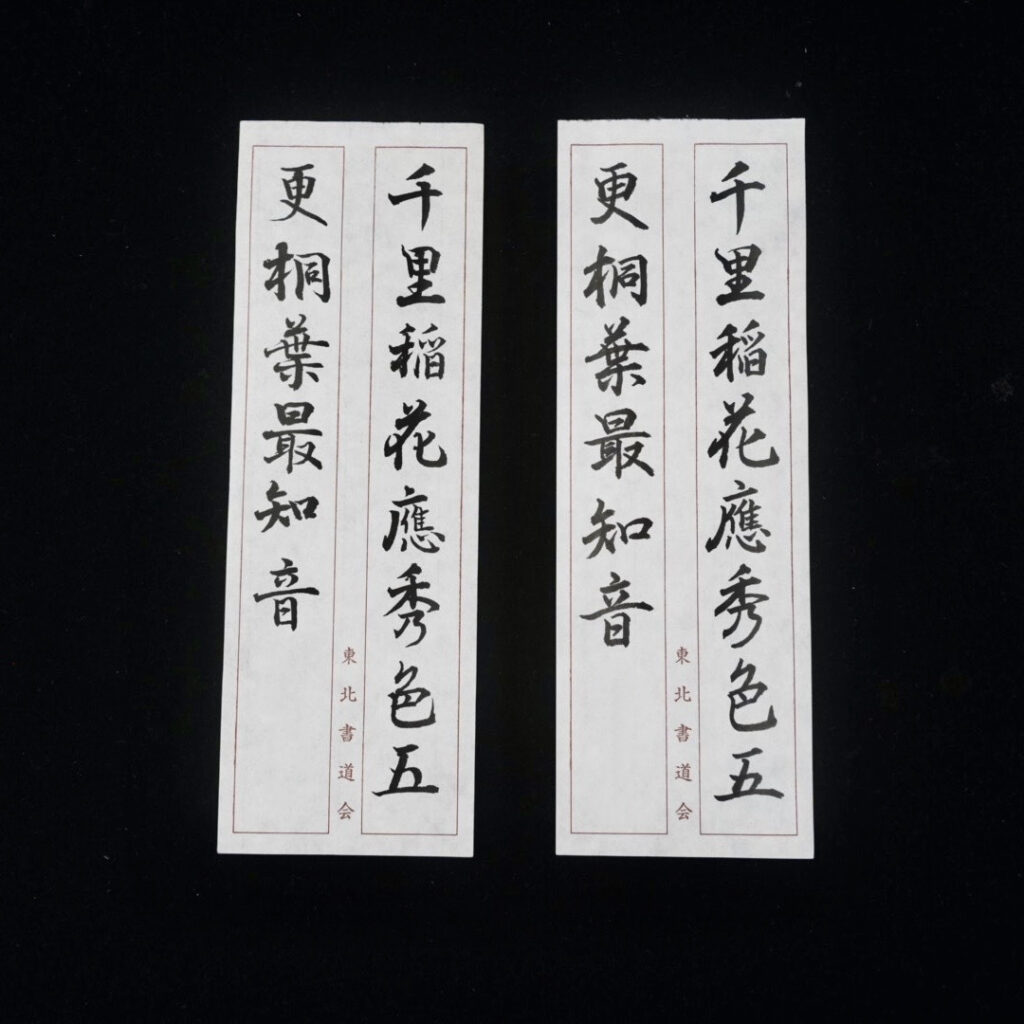 千里稲花應秀色五
更桐葉最知音
東北書道会
千里稲花應秀色五
更桐葉最知音
東北書道会